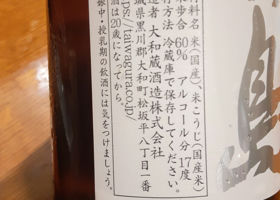 材料名 米(国産)、米こうじ(国産米)
歩合 60% アルコール分 17度
存方法 冷蔵庫で保存してください。
造者 大和蔵酒造株式会社
城県黒川郡大和町松坂平八丁目一番
https://taiwagura.co.jp/
酒は20歳になってから。
娠中・授乳期の飲酒には気をつけましょう。